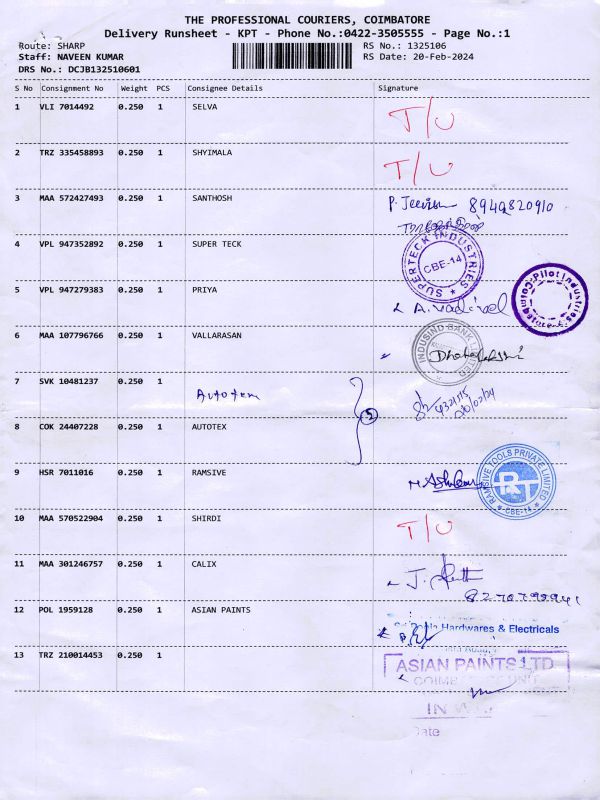 THE PROFESSIONAL COURIERS, COIMBATORE
Delivery Runsheet - KPT - Phone No.:0422-3505555 - Page No.:1
Route: SHARP RS No.: 1325106
Staff: NAVEEN KUMAR RS Date: 20-Feb-2024
DRS No.: DCJB132510601
S No Consignment No Weight PCS Consignee Details Signature
1 VLI 7014492 0.250 1 SELVA T/U
2 TRZ 335458893 0.250 1 SHYIMALA T/U
3 MAA 572427493 0.250 1 SANTHOSH P. Jeevan
4 VPL 947352892 0.250 1 SUPER TECK SUPERTECK INDUSTRIES CBE-14
5 VPL 947279383 0.250 1 PRIYA A. Vadivel Pilot Industries
6 MAA 107796766 0.250 1 VALLARASAN INDUSIND BANK LIMITED
7 SVK 10481237 0.250 1 Autotex
5
8 COK 24407228 0.250 1 AUTOTEX
9 HSR 7011016 0.250 1 RAMSIVE RAMSIVE TOOLS PRIVATE LIMITED RT CBE-14
10 MAA 570522904 0.250 1 SHIRDI T/U
11 MAA 301246757 0.250 1 CALIX
12 POL 1959128 0.250 1 ASIAN PAINTS Hardwares & Electricals
13 TRZ 210014453 0.250 1 ASIAN PAINTS LTD
Date